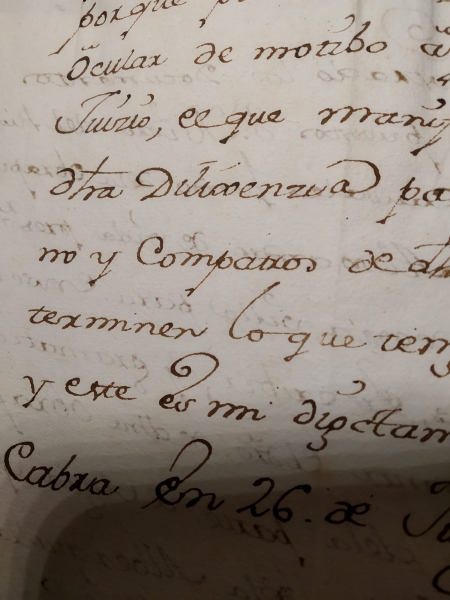 porque p
Ocular de motibo a
Juizio, ee que mani
dha Dilixenzia pa
no y Compatros de dh
terminen lo que teng
y este es mi digctam
Cabra en 26. de Ju